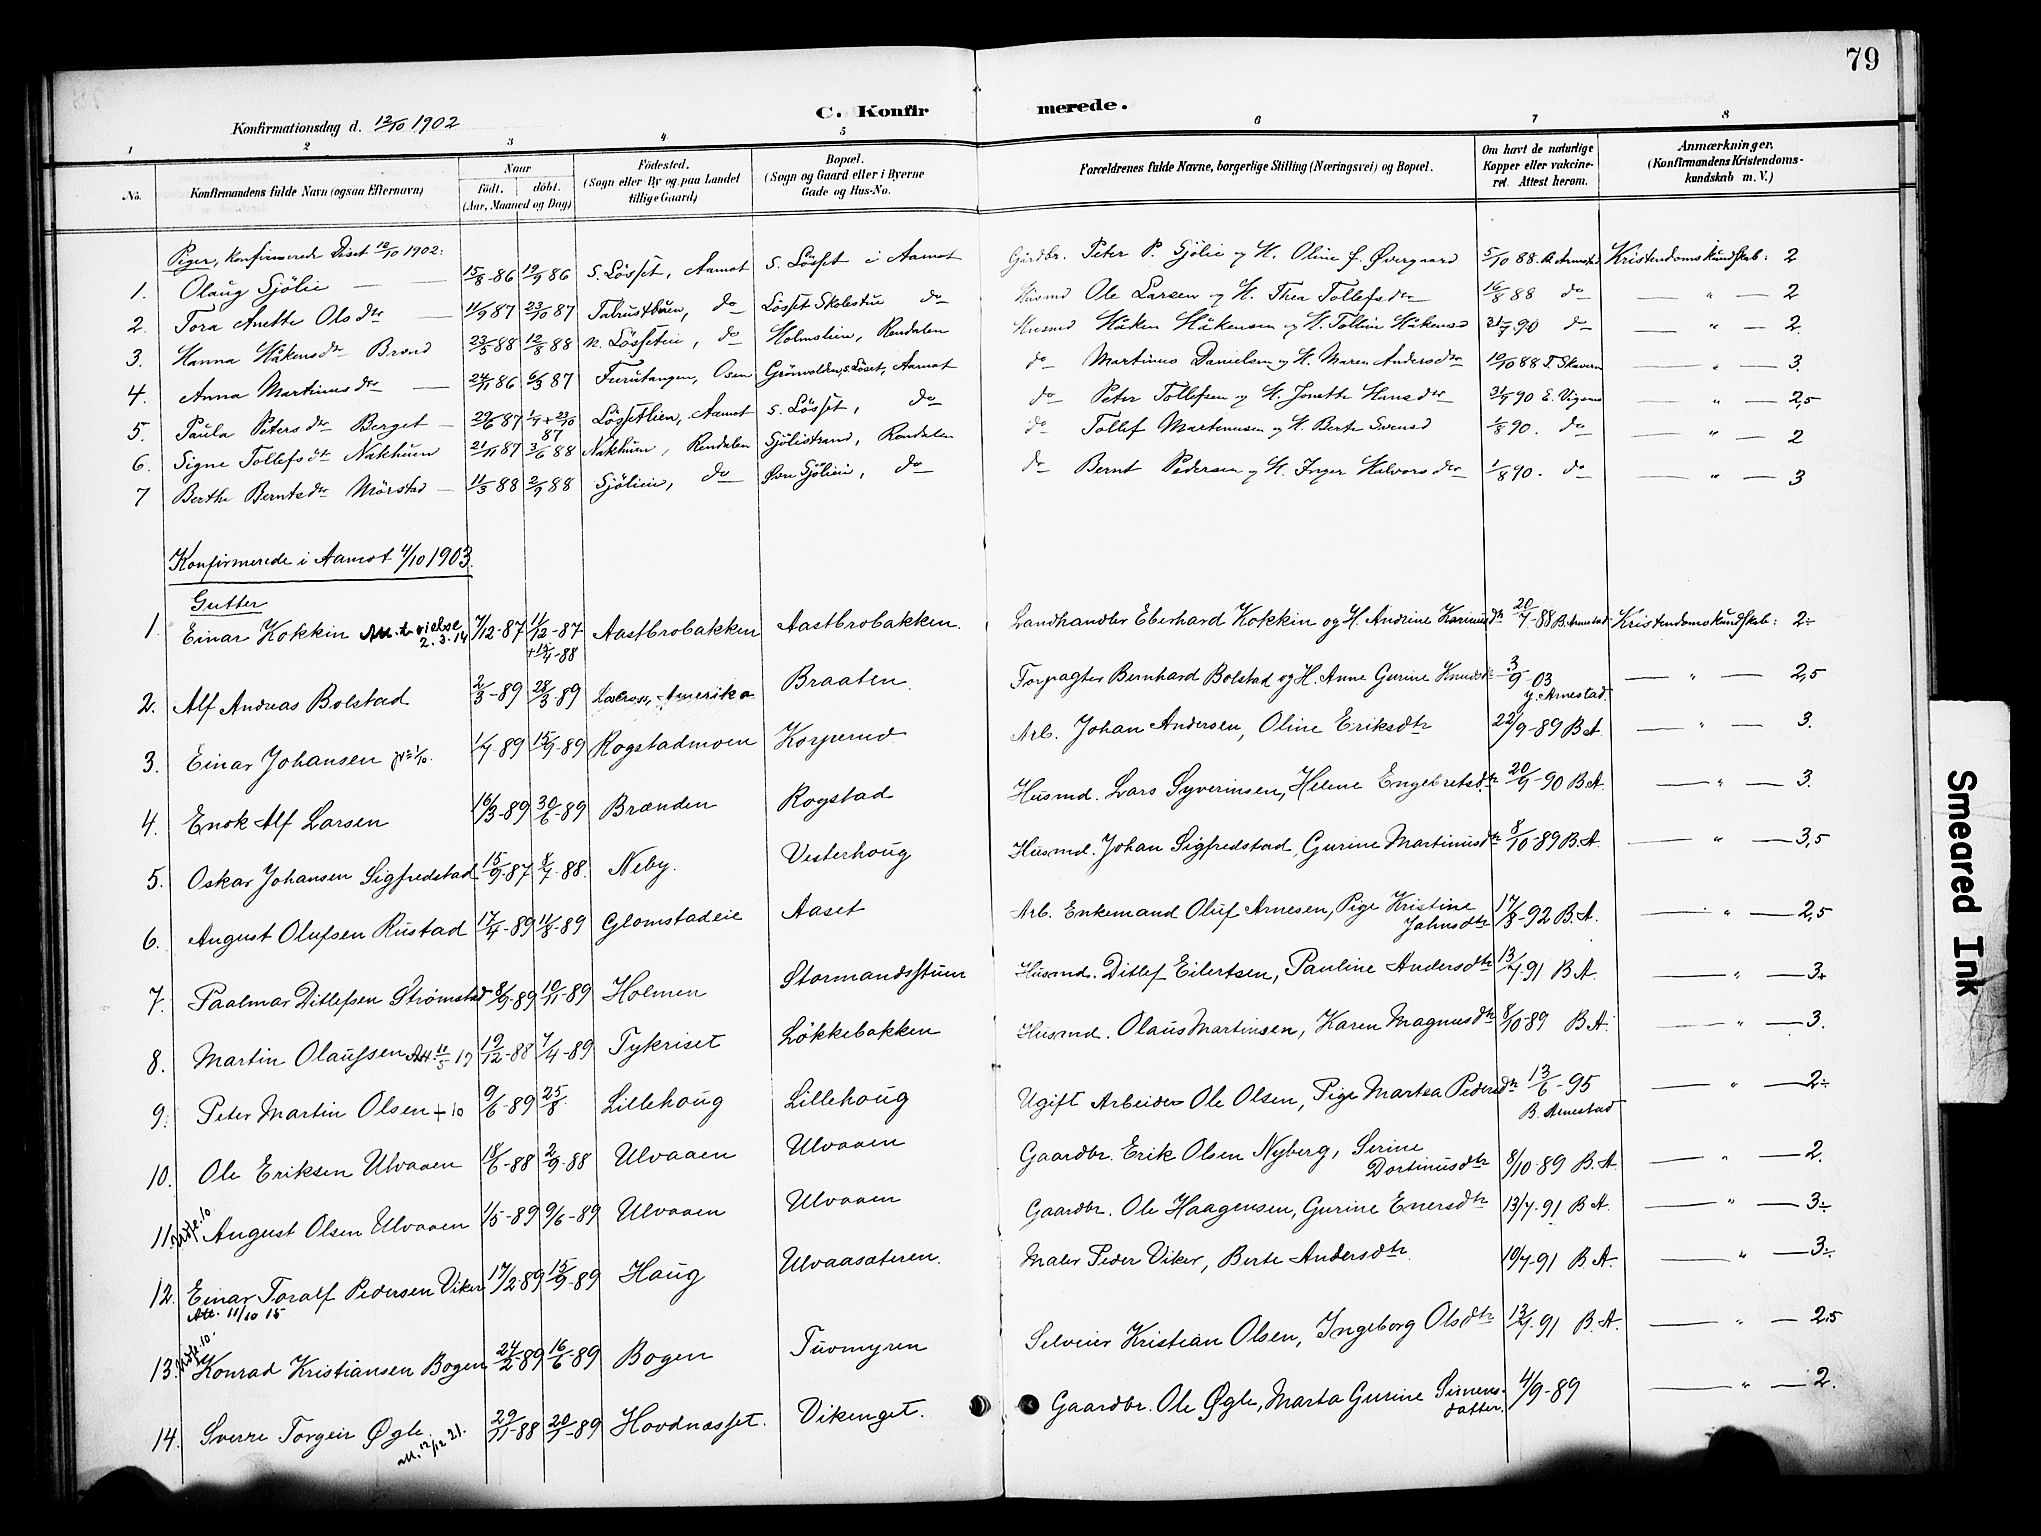 79
C. Konfirmerede.
Konfirmationsdag d. 12/10 1902
1 2 3 4 5 6 7 8
No. Konfirmandens fulde Navn (ogsaa Efternavn) Naar født. døbt. (Aar, Maaned og Dag) Födested. (Sogn eller By og paa Landet tillige Gaard) Bopæl. (Sogn og Gaard eller i Byerne Gade og Hus-No. Forældrenes fulde Navne, borgerlige Stilling (Næringsvei) og Bopæl. Om havt de naturlige Kopper eller vakcineret. Attest herom. Anmærkninger. (Konfirmandens Kristendomskundskab m. V.)
Piger, konfirmerede Deset 12/10 1902:
1. Olaug Sjölie — 15/8-86 19/9 86 S. Lösset, Aamot S. Lösset i Aamot Gårdbr. Peter P. Sjölie og H. Oline f. Övergaard 5/10 88. B. Arnestad Kristendomskundskab: 2
2. Tora Anette Olsdtr — 11/9 87 23/10 87 do Lösset Skolestue do Husmd Ole Larsen og H. Thea Tollefsdtr 16/8 88 do — " — 2
3. Hanna Håkensdtr Brænd 23/5 88 12/8 88 N. Lösseteie, do Holmsteien, Rendalen Husmd Håken Håkensen og H. Tolline Håkensd 21/7 90 do — " — 2.
4. Anna Martinusdtr — 24/11 86 6/3 87 Furutangen, Osen Grönvolden, S. Löset, Aamot do Martinus Danielsen og H. Maren Andersdtr 10/10 88 T. Skavern — " — 3.
5. Paula Petersdtr Berget — 29/6 87 1/7 + 23/10 87 Lössetlien, Aamot S. Lösset, do do Peter Tollefsen og H. Jonette Hansdtr 31/7 90 E. Vigenes — " — 2,5
6. Signe Tollefsdtr Nakhuen 21/11 87 3/6 88 Nakhuen, Rendalen Sjölistrand, Rendalen do Tollef Martenusen og H. Berte Svensd 1/8 90. do — " — 2
7 Berthe Berntsdtr Mörstad — 11/3 88 2/9 88 Sjölieie, do Övre Sjölieie, do do Bernt Pedersen og H. Inger Halvorsdtr 1/8 90. do — " — 3
Konfirmerede i Aamot 4/10 1903.
Gutter
1. Einar Kokkin Att. t. vielse 2.3.14 7/12-87 11/12-87 + 15/4-88 Aastbrobakken Aastbrobakken. Landhandler Eberhard Kokkin og H. Andrine Karinusdtr 20/7-88 B. Arnestad Kristendomskundskab: 2÷
2. Alf Andreas Bolstad 2/3-89 28/3-89 Lacross, Amerika Braaten. Forpagter Bernhard Bolstad og H. Anne Gurine Knudsdtr 3/9-03 J. Arnestad — " — 2,5
3. Einar Johansen 1/7-89 15/9-89 Rogstadmoen Korperud Arb. Johan Andersen, Oline Eriksdtr 22/9-89 B.A. — " — 3.
4. Enok Alf Larsen 16/3-89 30/6-89 Brænden Rogstad Husmd. Lars Syverinsen, Helene Engebretsdtr 20/9-90 B.A. — " — 3.
5. Oskar Johansen Sigfredstad 15/9-87 8/7-88. Neby. Vesterhoug Husmd. Johan Sigfredstad, Gurine Martinusdtr 8/10-89 B.A. — " — 3,5
6. August Olufsen Rustad 17/4-89 11/8-89 Glomstadeie Aaset Arb. Enkemand Oluf Arnesen, Pige Kristine Jahnsdtr 17/8-92 B.A. — " — 2,5
7. Paalmar Ditlefsen Strömstad 8/9-89 10/11-89 Holmen Stormandsstuen Husmd. Ditlef Eilertsen, Pauline Andersdtr 13/7-91 B.A. — " — 3+
8. Martin Olaussen Att. 11/5 17 19/12-88 7/4-89 Tykriset Løkkebakken Husmd. Olaus Martinsen, Karen Magnusdtr 8/10-89 B.A. — " — 3.
9. Peter Martin Olsen ÷ 10 9/6-89 25/8. Lillehoug Lillehoug Ugift Arbeider Ole Olsen, Pige Martea Pedersdtr 13/6-95 B. Arnestad — " — 2÷
10. Ole Eriksen Ulvaaen 18/6-88 2/9-88 Ulvaaen Ulvaaen Gaardbr. Erik Olsen Nyberg, Serine Dortinusdtr 8/10-89 B.A. — " — 2.
11. August Olsen Ulvaaen 1/5-89 9/6-89 Ulvaaen Ulvaaen Gaardbr. Ole Haagensen, Gurine Enersdtr 13/7-91 B.A. — " — 3÷
12. Einar Toralf Pedersen Viker Att. 11/10 15 17/2-89 15/9-89 Haug Ulvaasæteren. Maler Peder Viker, Berte Andersdtr. 10/7-91 B.A. — " — 3÷
13. Konrad Kristiansen Bogen 24/2-89 16/6-89 Bogen Tuvmyren Selveier Kristian Olsen, Ingeborg Olsdtr 13/7-91 B.A. — " — 2,5
14. Sverre Torgeir Øgle att. 12/12 21. 29/11-88 20/1-89 Hovdnæsset. Vikenget. Gaardbr. Ole Øgle, Marta Gurine Simensdatter. 4/9-89 — " — 2.
Smeared Ink